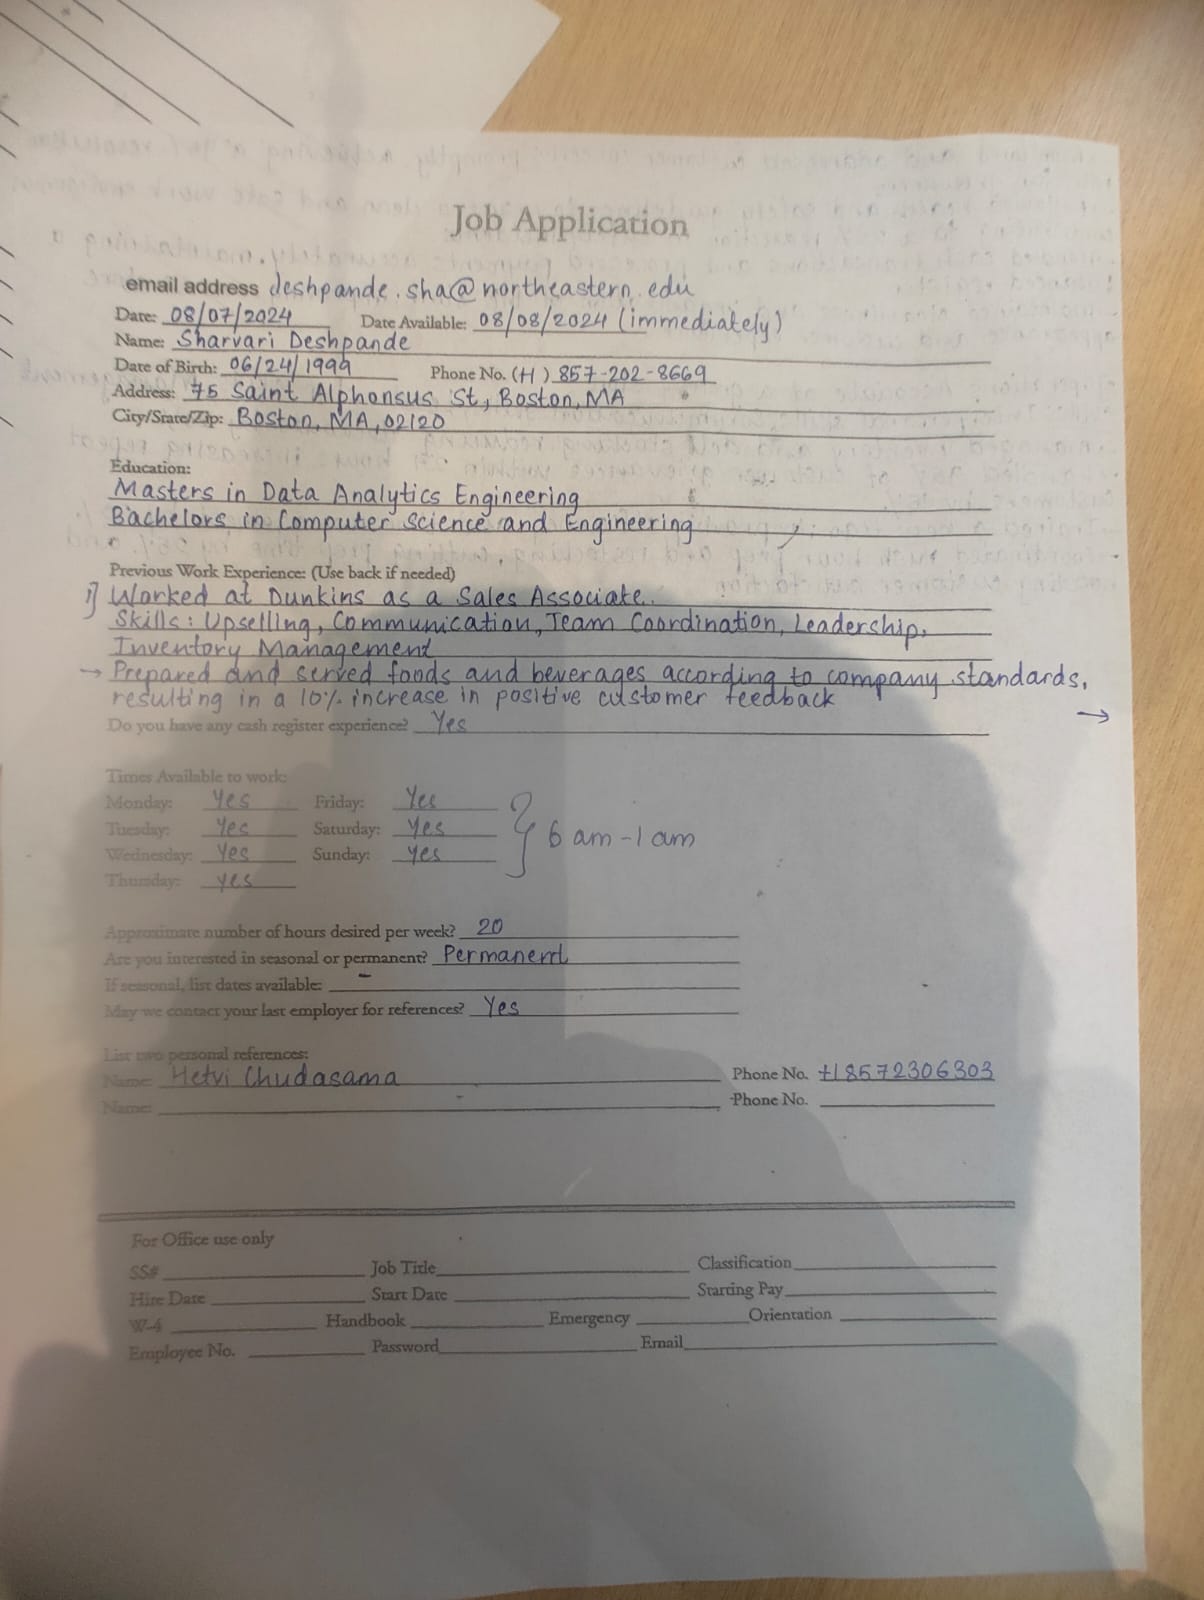 Job Application
email address deshpande.sha@northeastern.edu
Date: 08/07/2024 Date Available: 08/08/2024 (immediately)
Name: Sharvari Deshpande
Date of Birth: 06/24/1999 Phone No. (H) 857-202-8669
Address: 75 Saint Alphonsus St, Boston, MA
City/State/Zip: Boston, MA, 02120
Education:
Masters in Data Analytics Engineering
Bachelors in Computer Science and Engineering
Previous Work Experience: (Use back if needed)
1] Worked at Dunkins as a Sales Associate.
Skills: Upselling, Communication, Team Coordination, Leadership,
Inventory Management
→ Prepared and served foods and beverages according to company standards,
resulting in a 10% increase in positive customer feedback
→
Do you have any cash register experience? Yes
Times Available to work:
Monday: Yes Friday: Yes
Tuesday: Yes Saturday: Yes
Wednesday: Yes Sunday: Yes
Thursday: yes
} 6 am - 1 am
Approximate number of hours desired per week? 20
Are you interested in seasonal or permanent? Permanent
If seasonal, list dates available:
May we contact your last employer for references? Yes
List two personal references:
Name: Hetvi Chudasama Phone No. +18572306303
Name: Phone No.
For Office use only
SS# Job Title Classification
Hire Date Start Date Starting Pay
W-4 Handbook Emergency Orientation
Employee No. Password Email